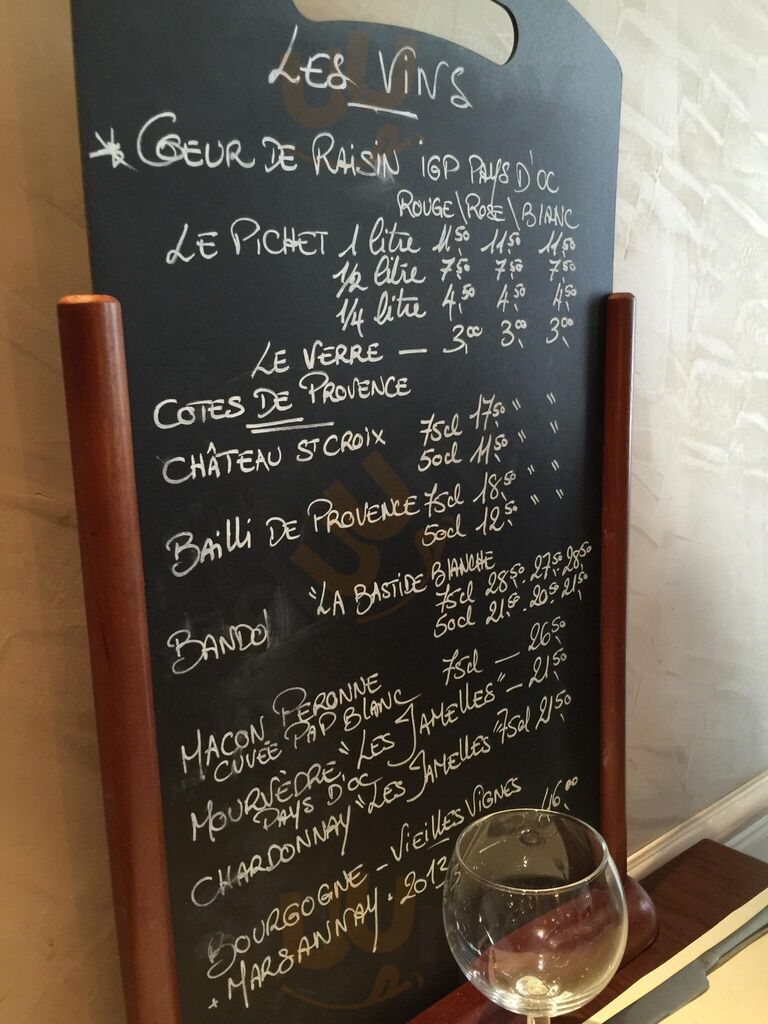 LES VINS
* COEUR DE RAISIN IGP PAYS D'OC
ROUGE\ROSE\BLANC
LE PICHET 1 litre 11,50 11,50 11,50
1/2 litre 7,50 7,50 7,50
1/4 litre 4,50 4,50 4,50
LE VERRE — 3,00 3,00 3,00
COTES DE PROVENCE
CHÂTEAU ST CROIX 75cl 17,50 " "
50cl 11,50 " "
BAilli DE PROVENCE 75cl 18,50 " "
50cl 12,50 " "
"LA BASTIDE BLANCHE
BANDOl 75cl 28,50 27,50 28,50
50cl 21,50 20,50 21,50
MACON PERONNE 75cl — 26,50
CUVEE PAP BLANC
MOURVÈDRE, "LES JAMELLES" — 21,50
PAYS D'OC
CHARDONNAY "LES JAMELLES" 75cl 21,50
BOURGOGNE - VIEILLES VIGNES 46,00
* MARSANNAY . 2013